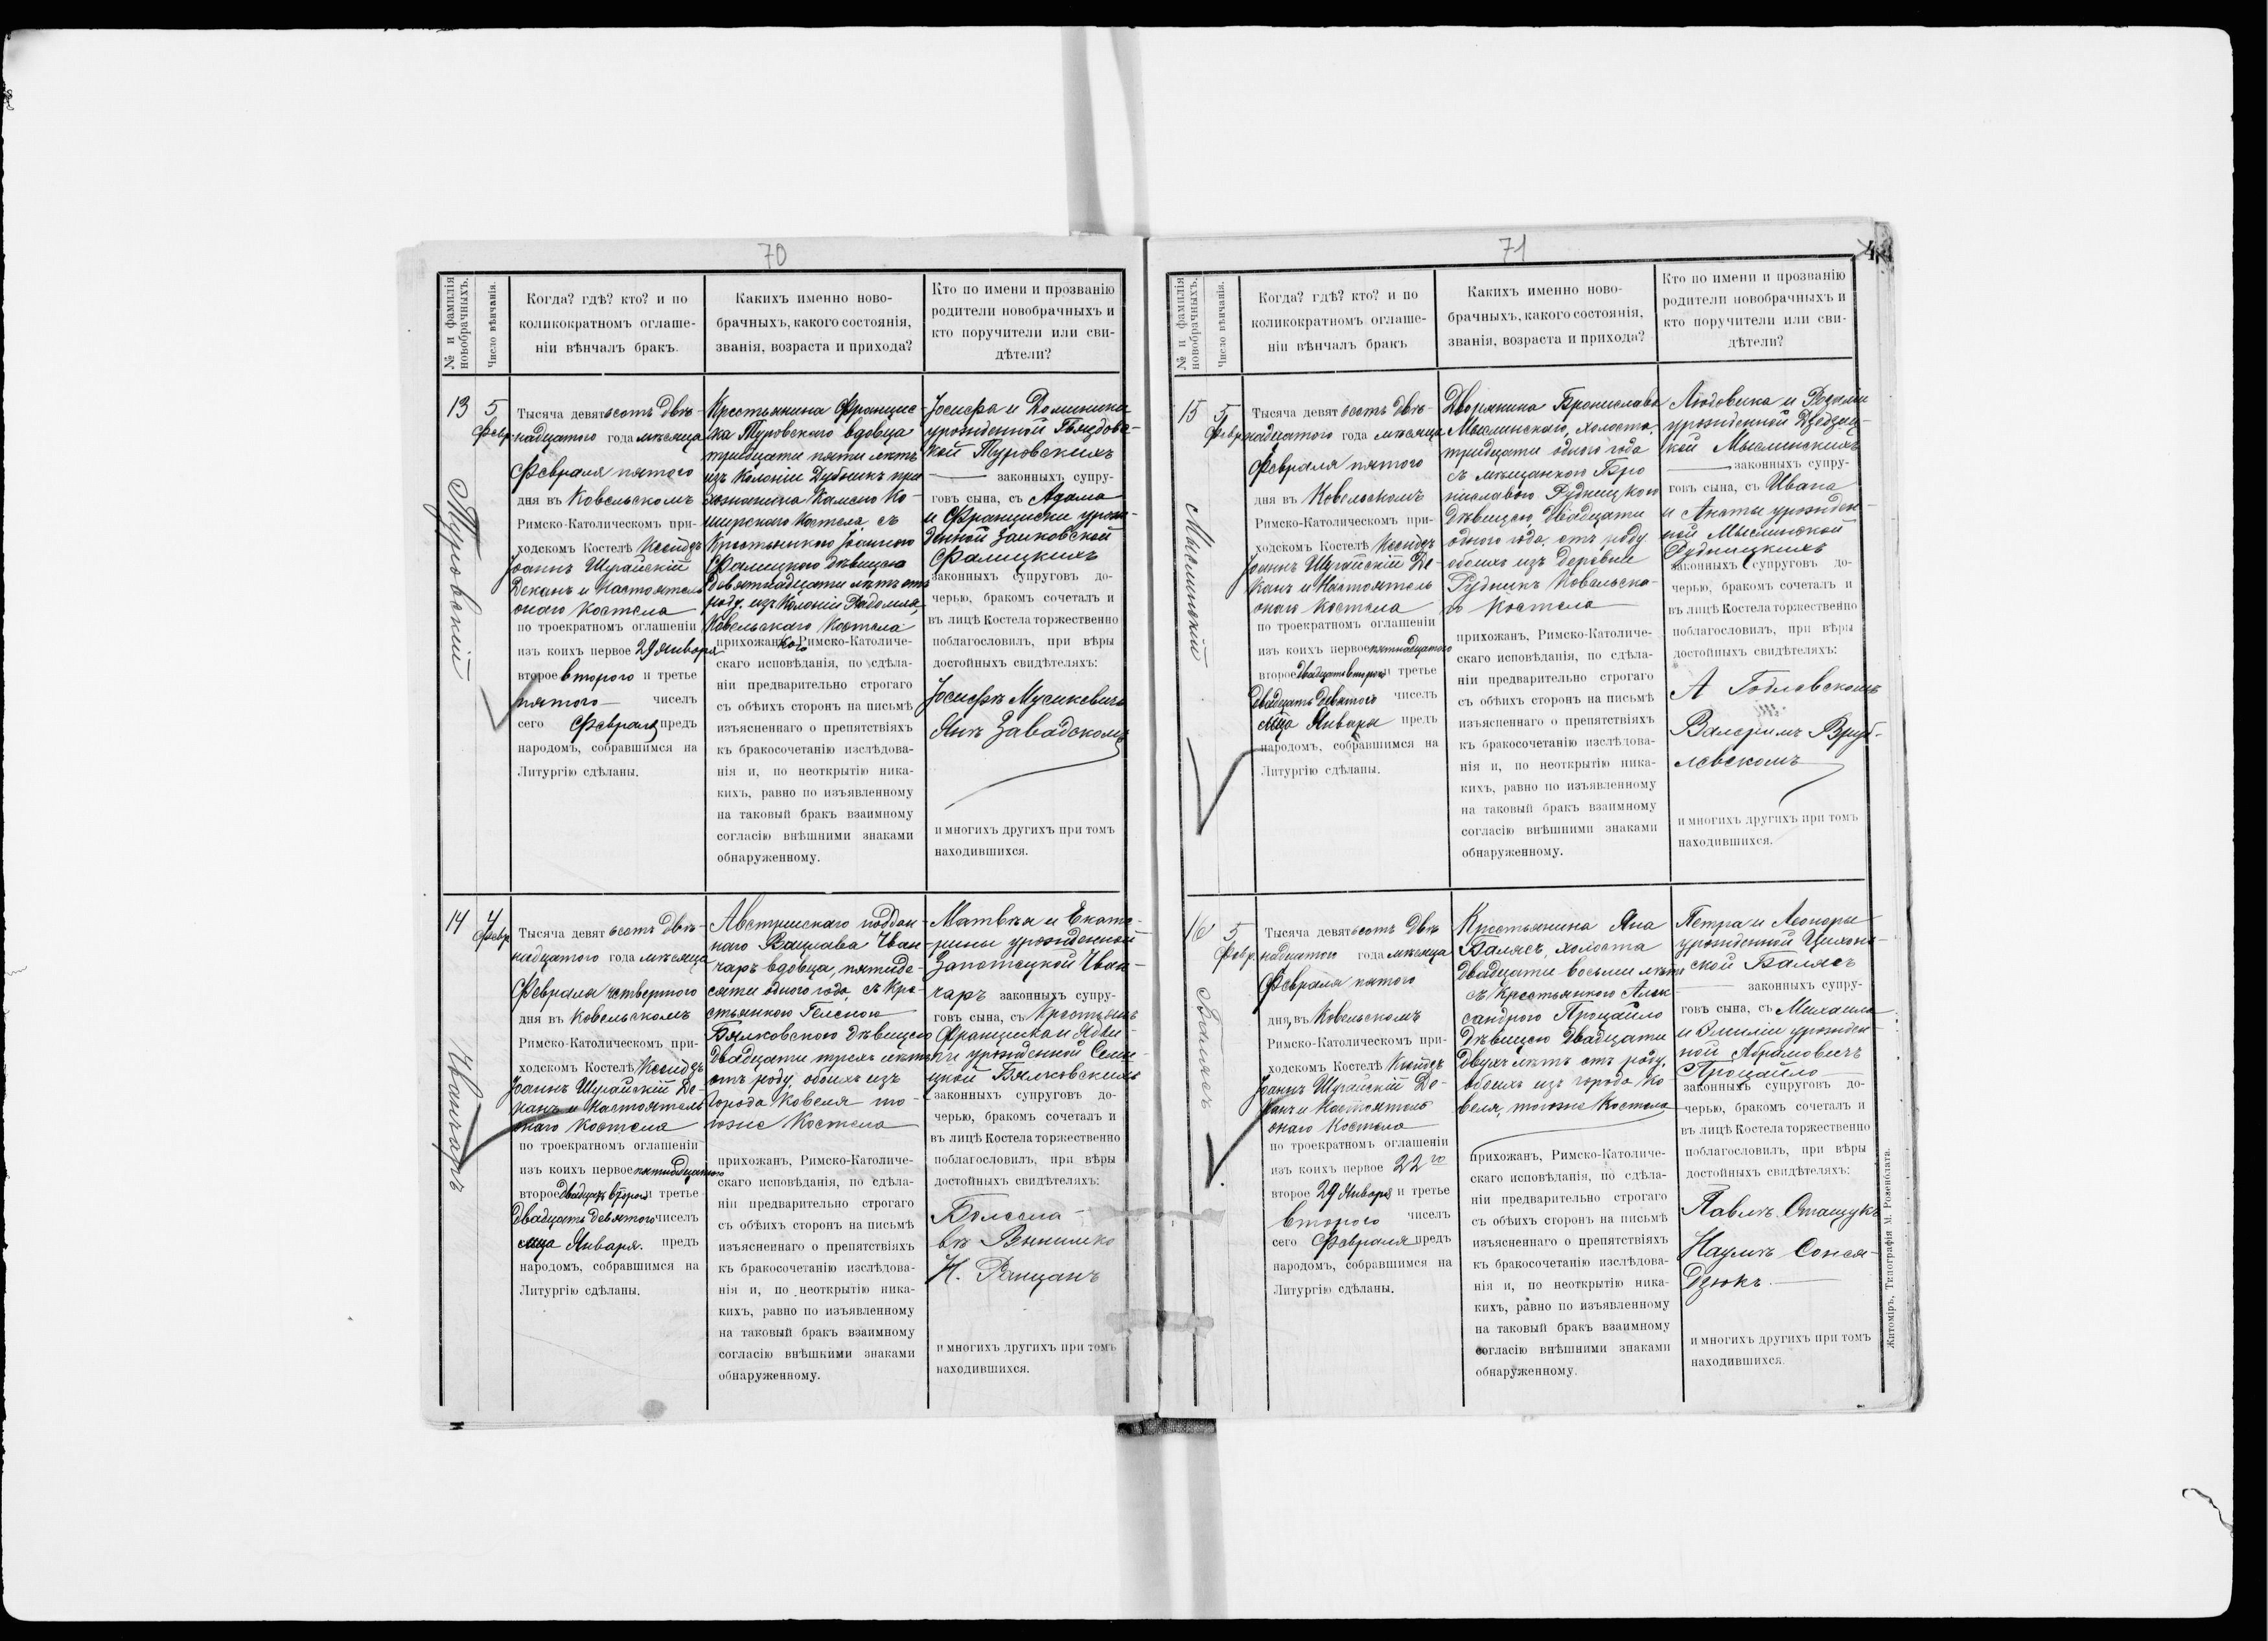 70
№ и фамилія новобрачныхъ.
Число вѣнчанія.
Когда? гдѣ? кто? и по
коликократномъ оглаше-
ніи вѣнчалъ бракъ.
Какихъ именно ново-
брачныхъ, какого состоянія,
званія, возраста и прихода?
Кто по имени и прозванію
родители новобрачныхъ и
кто поручители или сви-
дѣтели?
13
5
Февр.
Туровскій
Тысяча девятьсотъ двѣ-
надцатого года мѣсяца
Февраля пятого
дня въ Ковельскомъ
Римско-Католическомъ при-
ходскомъ Костелѣ Ксендзъ
Іоаннъ Шурайскій
Деканъ и Настоятель
онаго Костела
по троекратномъ оглашеніи
изъ коихъ первое 29 Января
второе второго и третье
пятого чиселъ
сего Февраля предъ
народомъ, собравшимся на
Литургію сдѣланы.
Крестьянина Францис-
ка Туровскаго вдовца
тридцати пяти лѣтъ
изъ Колоніи Дубникъ при
хожанина Камено Ко-
ширскаго Костела, съ
Крестьянкою Іоанною
Фалицкою дѣвицею
девятнадцати лѣтъ отъ
роду, изъ Колоніи Радомля,
Ковельскаго Костела
прихожанкою Римско-Католиче-
скаго исповѣданія, по сдѣла-
ніи предварительно строгаго
съ обѣихъ сторонъ на письмѣ
изъясненнаго о препятствіяхъ
къ бракосочетанію изслѣдова-
нія и, по неоткрытію ника-
кихъ, равно по изъявленному
на таковый бракъ взаимному
согласію внѣшними знаками
обнаруженному.
Іосифа и Доминики
урожденной Гвяздовс-
кой Туровскихъ
законныхъ супру-
говъ сына, съ Адама
и Франциски урож-
денной Заиковской
Фалицкихъ
законныхъ супруговъ до-
черью, бракомъ сочеталъ и
въ лицѣ Костела торжественно
поблагословилъ, при вѣры
достойныхъ свидѣтеляхъ:
Іосифъ Мусикевичъ
Янъ Завадскомъ
и многихъ другихъ при томъ
находившихся.
14
4
Февр
Иванчаръ
Тысяча девятьсотъ двѣ-
надцатого года мѣсяца
Февраля четвертого
дня въ Ковельскомъ
Римско-Католическомъ при-
ходскомъ Костелѣ Ксендзъ
Іоаннъ Шурайскій Де-
канъ и Настоятель
онаго Костела
по троекратномъ оглашеніи
изъ коихъ первое пятнадцатого
второе двадцать второго и третье
двадцать девятого чиселъ
мца Января. предъ
народомъ, собравшимся на
Литургію сдѣланы.
Австрійскаго поддан-
наго Вацлава Иван-
чаръ вдовца, пятиде-
сяти одного года, съ Кре-
стьянкою Геленою
Бялковскою дѣвицею
двадцати трехъ лѣтъ
отъ роду, обоихъ изъ
города Ковеля то-
гоже Костела
прихожанъ, Римско-Католиче-
скаго исповѣданія, по сдѣла-
ніи предварительно строгаго
съ обѣихъ сторонъ на письмѣ
изъясненнаго о препятствіяхъ
къ бракосочетанію изслѣдова-
нія и, по неоткрытію ника-
кихъ, равно по изъявленному
на таковый бракъ взаимному
согласію внѣшними знаками
обнаруженному.
Матвѣя и Екате-
рины урожденной
Запотецкой Иван-
чаръ законныхъ супру-
говъ сына, съ Крестьянъ
Францишка и Ядви-
ги урожденной
Бялковскихъ
законныхъ супруговъ до-
черью, бракомъ сочеталъ и
въ лицѣ Костела торжественно
поблагословилъ, при вѣры
достойныхъ свидѣтеляхъ:
Болесла-
въ
Н.
и многихъ другихъ при томъ
находившихся.
71
№ и фамилія новобрачныхъ.
Число вѣнчанія.
Когда? гдѣ? кто? и по
коликократномъ оглаше-
ніи вѣнчалъ бракъ
Какихъ именно ново-
брачныхъ, какого состоянія,
званія, возраста и прихода?
Кто по имени и прозванію
родители новобрачныхъ и
кто поручители или сви-
дѣтели?
15
5
Февр.
Мыслинскій
Тысяча девятьсотъ двѣ-
надцатого года мѣсяца
Февраля пятого
дня въ Ковельскомъ
Римско-Католическомъ при-
ходскомъ Костелѣ Ксендзъ
Іоаннъ Шурайскій Де-
канъ и Настоятель
онаго Костела
по троекратномъ оглашеніи
изъ коихъ первое пятнадцатого
второе двадцать второго и третье
двадцать девятого чиселъ
мца Января предъ
народомъ, собравшимся на
Литургію сдѣланы.
Дворянина Бронислава
Мыслинскаго, холоста,
тридцати одного года
съ мѣщанкою Бро
ниславою Рудницкою
дѣвицею, двадцати
одного года отъ роду
обоихъ изъ деревни
Рудникъ Ковельска-
го Костела
прихожанъ, Римско-Католиче-
скаго исповѣданія, по сдѣла-
ніи предварительно строгаго
съ обѣихъ сторонъ на письмѣ
изъясненнаго о препятствіяхъ
къ бракосочетанію изслѣдова-
нія и, по неоткрытію ника-
кихъ, равно по изъявленному
на таковый бракъ взаимному
согласію внѣшними знаками
обнаруженному.
Людовика и Розаліи
урожденной Дзедзиц-
кой Мыслинскихъ
законныхъ супру-
говъ сына, съ Ивана
и Анэты урожден-
ной Мыслинской
Рудницкихъ
законныхъ супруговъ до-
черью, бракомъ сочеталъ и
въ лицѣ Костела торжественно
поблагословилъ, при вѣры
достойныхъ свидѣтеляхъ:
А Годлевскомъ
Валеріимъ Вруб-
левскомъ
и многихъ другихъ при томъ
находившихся.
16
5
Февр.
Балясъ
Тысяча девятьсотъ двѣ
надцатого года мѣсяца
Февраля пятого
дня въ Ковельскомъ
Римско-Католическомъ при-
ходскомъ Костелѣ Ксендзъ
Іоаннъ Шурайскій Де-
канъ и Настоятель
онаго Костела
по троекратномъ оглашеніи
изъ коихъ первое 22го
второе 29 Января и третье
второго чиселъ
сего Февраля предъ
народомъ, собравшимся на
Литургію сдѣланы.
Крестьянина Яна
Балясъ, холоста
двадцати восьми лѣтъ
съ Крестьянкою Алек
сандрою Процайло
дѣвицею двадцати
двухъ лѣтъ отъ роду,
обоихъ изъ города Ко-
веля, тогоже Костела
прихожанъ, Римско-Католиче-
скаго исповѣданія, по сдѣла-
ніи предварительно строгаго
съ обѣихъ сторонъ на письмѣ
изъясненнаго о препятствіяхъ
къ бракосочетанію изслѣдова-
нія и, по неоткрытію ника-
кихъ, равно по изъявленному
на таковый бракъ взаимному
согласію внѣшними знаками
обнаруженному.
Петра и Леоноры
урожденной Цихонь-
ской Балясъ
законныхъ супру-
говъ сына, съ Михаила
и Эмиліи урожден-
ной Абрамовичъ
Процайло
законныхъ супруговъ до-
черью, бракомъ сочеталъ и
въ лицѣ Костела торжественно
поблагословилъ, при вѣры
достойныхъ свидѣтеляхъ:
Павелъ Стащукъ
Наумъ Сонся-
дзюкъ.
и многихъ другихъ при томъ
находившихся.
Житоміръ, Типографія М. Розенблата.